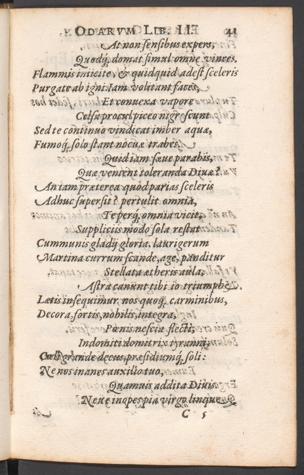 ODARVM LIB. III 41
At non sensibus expers,
Quodq́; domat simul omne vinces.
Flammis inicite, & quidquid adest sceleris
Purgate ab igni: iam volitant faces,
Et conuexa vapore
Celsa procul piceo nigrescunt.
Sed te continuo vindicat imber aquæ,
Fumoq́; solo stant nocuæ trabes.
Quid iam saue parabis,
Quæ venient toleranda Diuæ?
An iam præterea quod parias sceleris
Adhuc supersit? pertulit omnia,
Teq́;erq́; omnia vicit,
Suppliciis modo sola restat
Communis gladij gloria. laurigerum
Martina currum scande, age, panditur
Stellata ætheris aula,
Astra canunt tibi io triumphe.
Lætis insequimur nos quoq́; carminibus,
Decora, fortis, nobilis, integra,
Pœnis nescia flecti,
Indomiti domitrix tyranni,
grande decus, præsidiumq́; soli:
Ne nos inanes auxilio tuo,
Quamuis addita Diuis,
Neue inopes pia virgo linque.
C 5